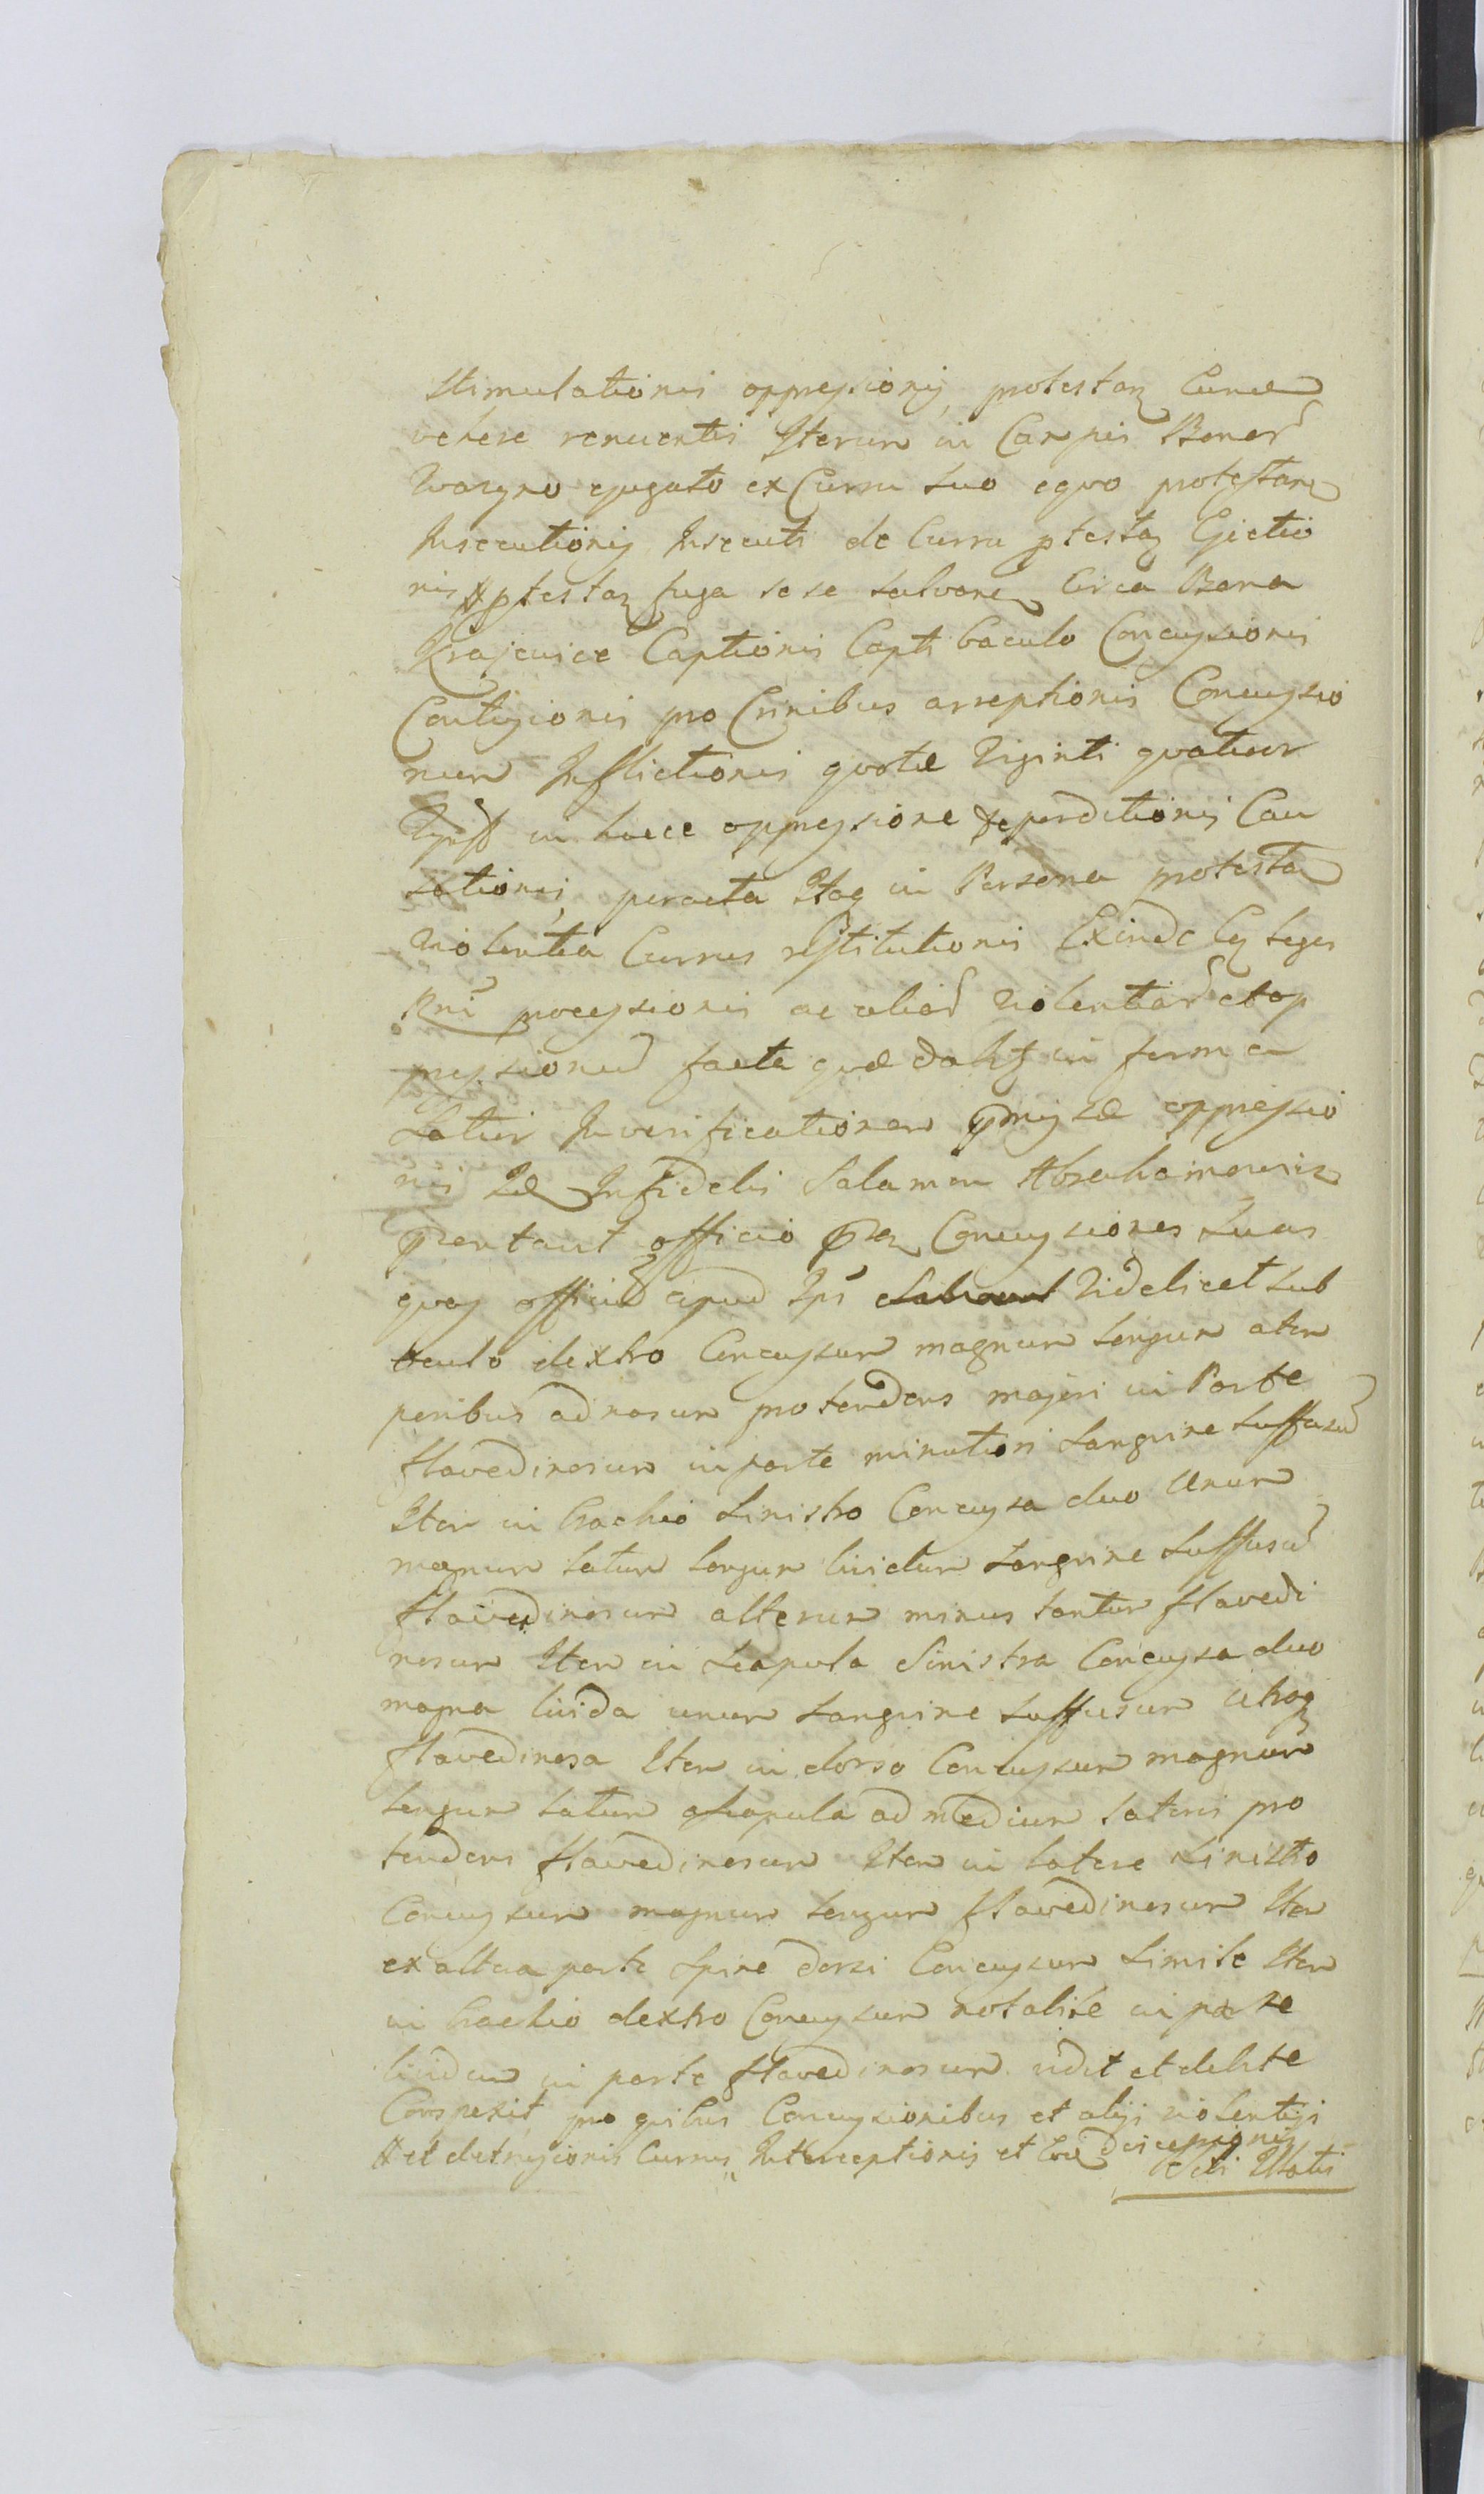 Stimulationis oppressionis protestan Curru
vehere renuentis Iterum in Campis Bonor
Woryno ejugato ex Curru suo equo protestan
Insecutionis Insecuti de Curru ptestan Ejectio
nis # ptestan fuga sese salvare Circa Bona
Krajewice Captionis Capti baculo Concussionis
Contusionis pro Crinibus arreptionis Concussio
num Inflictionis quotae Viginti quatuor
in hacce oppressione deperditionis Cau
sationis peracta Itaq in Persona protestan
violentia Currus restitutionis Exinde Leges
Rni processionis ac alior violentiar et op
pressionu facta quae dabit in forma
Latius In verificationem pmissae oppressio
nis Idem Infidelis Salamon Abrahamowicz
pentavit officio pn Concussiones suas
quas officiu apud Ipm Videlicet sub
oculo dextro Concussum magnum longum a tem
poribus ad nasum protendens majori in Parte
flavedinosum in parte minutiori sanguine suffusu
Item in brachio sinistro Concussa duo Unum
magnum latum longum lividum sanguine suffusu
flavedinosum alterum minus tantum flavedi
nosum Item in scapula Sinistra Concussa duo
magna livida unum sanguine suffusum utraq
flavedinosa Item in dorso Concussum magnum
longum latum a scapula ad medium lateris pro
tendens flavedinosum Item in latere sinistro
Concussum magnum longum flavedinosum Item
ex altera parte spine dorsi Concussum simile Item
in brachio dextro Concussum notabile in parte
lividum in parte flavedinosum vidit et debite
Conspexit pro quibus Concussionibus et alijs violentijs
# et detrusionis Currus Interceptionis et